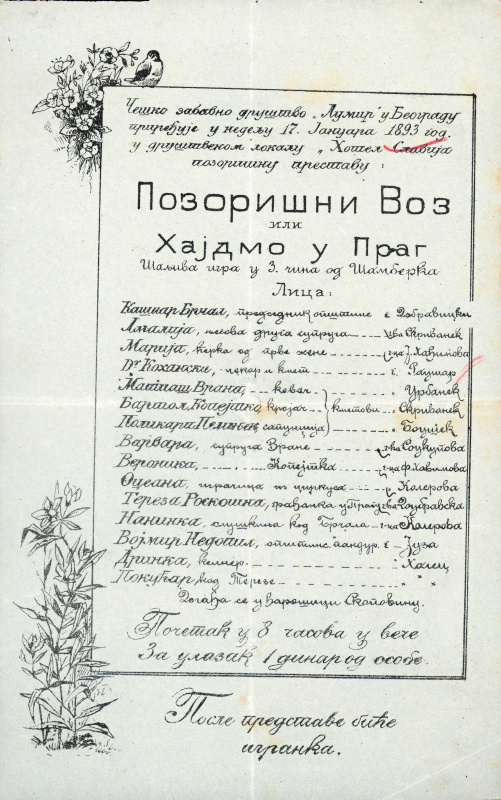 Чешко забавно друштво „Лумир" у Београду
приређује у недељу 17. Јануара 1893 год.
у друштвеном локалу „Хотел Славија
позоришну преставу:
Позоришни Воз
или
Хајдмо у Праг
Шаљива игра у 3. чина од Шамберка
Лица:
Кашпар Брчал, председник општине г. Добравицки
друга супруга г-ђа Скриванек
Марија, ћерка од прве жене г-ца Ј. Хавимова
Dr Кохански, лекар и кмет г. Раушар
Матијаш Врана, ковач " Урбанек
Копејтко кројач кметови " Скриванек
Поликарп " Боцијек
Варвара, супруга Вране г-ђа
Вероника, " Копејтка г-ца Ф. Хавимова
Оцеана, играчица из циркуса " Колерова
Тереза Роскошна, у Прагу г-ђа Доубравска
Нанинка, слушкиња код Брчала г-ца Колерова
Војмир Недопил, општинс. пандур г. Јуза
Дринка, келнер " Халец
Покућар, код Терезе " "
Догађа се у варошици
Почетак у 8 часова у вече
За улазак 1 динар од особе.
После представе биће
игранка.